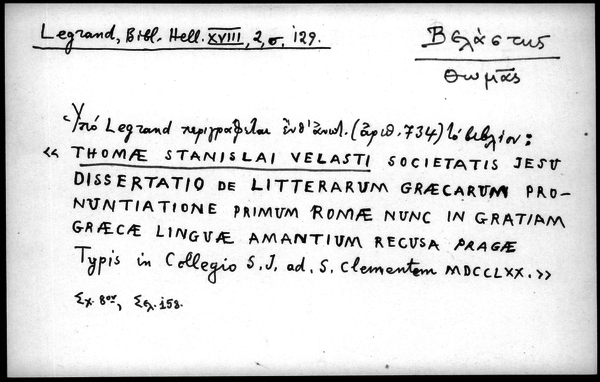 Legrand, Bibl. Hell. XVIII, 2, σ. 129.
Βελάστης
Θωμᾶς
Ὑπό Legrand περιγράφεται ἔνθ' ἀνωτ. (ἀριθ. 734) τό βιβλίον:
«THOMÆ STANISLAI VELASTI SOCIETATIS JESU
DISSERTATIO DE LITTERARUM GRÆCARUM PRO-
NUNTIATIONE PRIMUM ROMÆ NUNC IN GRATIAM
GRÆCÆ LINGUÆ AMANTIUM RECUSA PRAGÆ
Typis in Collegio S.J. ad. S. Clementem MDCCLXX.»
Σχ. 8ον, Σελ. 158.